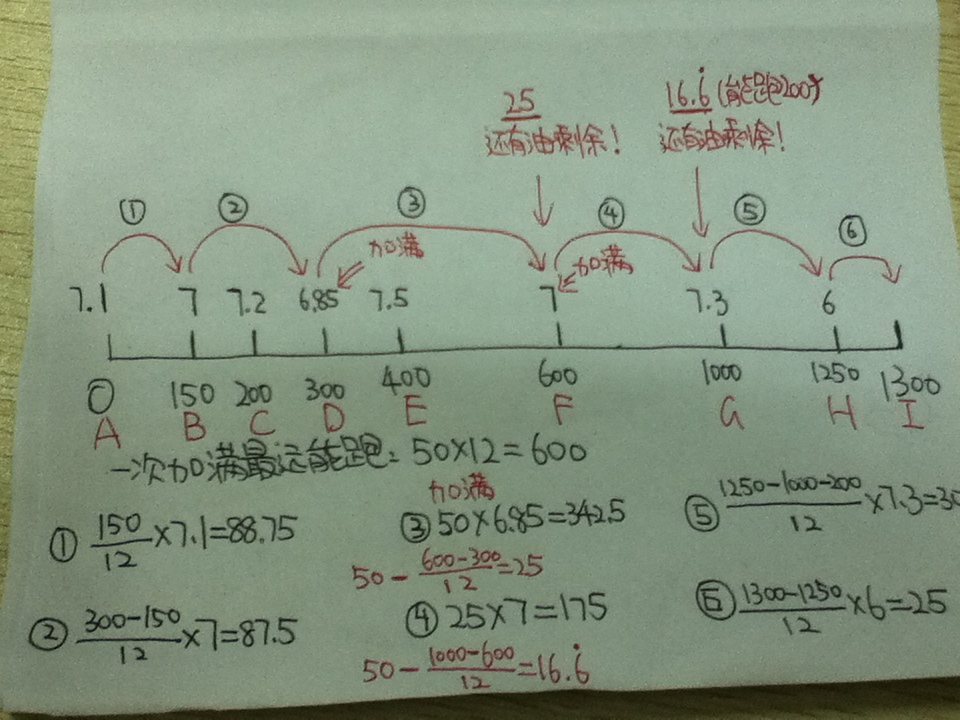 25
还有油剩余!
16.6̇ (能跑200)
还有油剩余!
① ② ③ ④ ⑤ ⑥
加满 加满
7.1 7 7.2 6.85 7.5 7 7.3 6
0 150 200 300 400 600 1000 1250 1300
A B C D E F G H I
一次加满最远能跑: 50×12=600
① 150/12×7.1=88.75
② 300-150/12×7=87.5
加满
③ 50×6.85=342.5
50-600-300/12=25
④ 25×7=175
50-1000-600/12=16.6̇
⑤ 1250-1000-200/12×7.3=30
⑥ 1300-1250/12×6=25